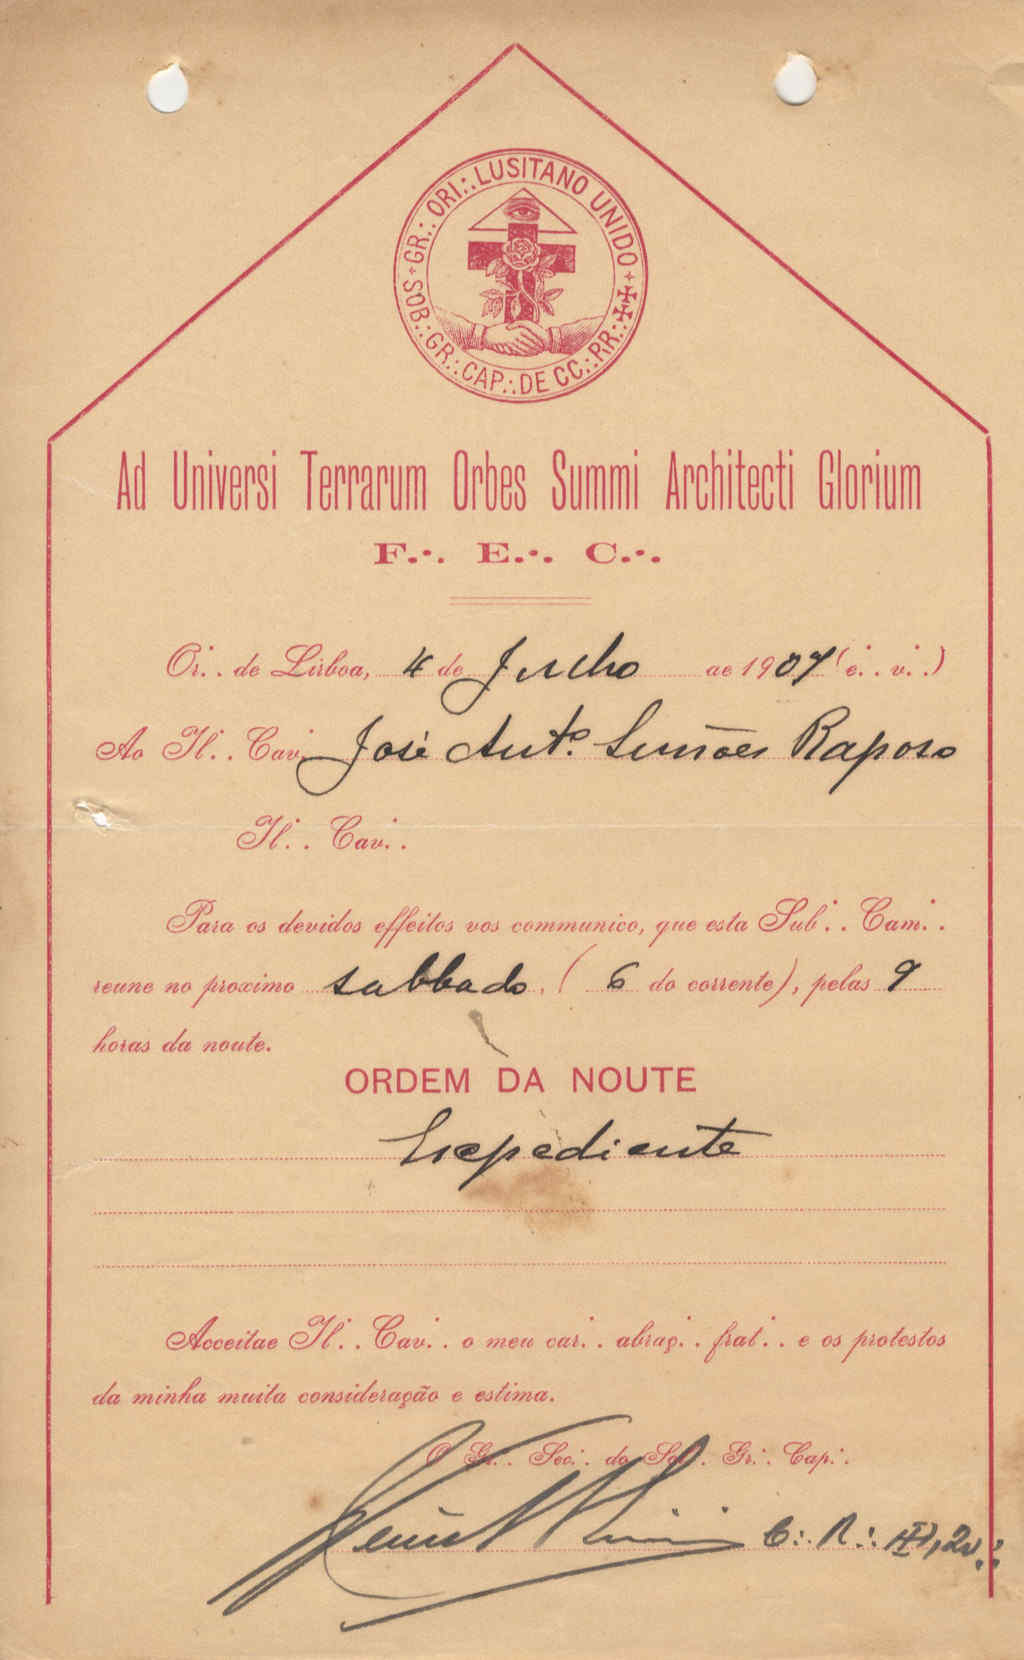 GR∴ ORI∴ LUSITANO UNIDO
SOB∴ GR∴ CAP∴ DE CC∴ RR∴
Ad Universi Terrarum Orbes Summi Architecti Glorium
F∴ E∴ C∴
Or∴ de Lisboa, 4 de Julho de 1907 (e∴ v∴)
Ao Il∴ Cav∴ José Antº Simões Raposo
Il∴ Cav∴
Para os devidos effeitos vos communico, que esta Sub∴ Cam∴
reune no proximo sabbado, (6 do corrente), pelas 9
horas da noute.
ORDEM DA NOUTE
Expediente
Acceitae Il∴ Cav∴ o meu car∴ abraç∴ frat∴ e os protestos
da minha muita consideração e estima.
O Gr∴ Sec∴ do Sob∴ Gr∴ Cap∴
C∴ R∴